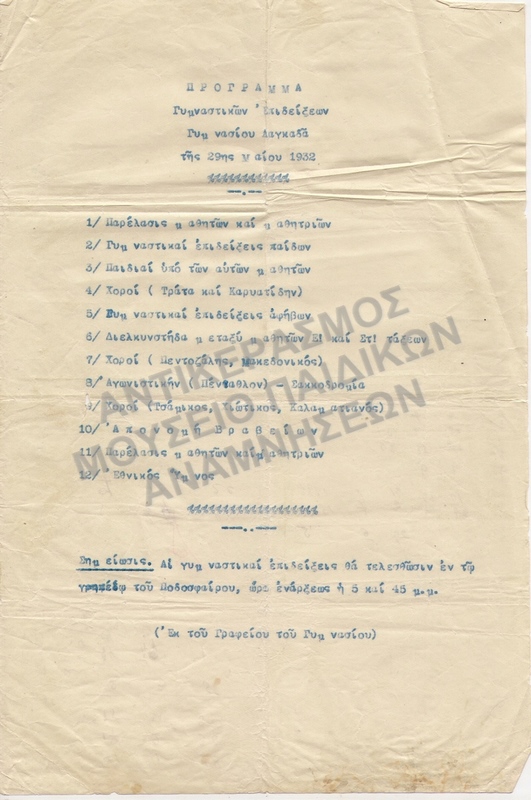 ΠΡΟΓΡΑΜΜΑ
Γυμναστικῶν Ἐπιδείξεων
Γυμνασίου Λαγκαδᾶ
τῆς 29ης Μαίου 1932
1/ Παρέλασις μαθητῶν καί μαθητριῶν
2/ Γυμναστικαί ἐπιδείξεις παίδων
3/ Παιδιαί ὑπό τῶν αὐτῶν μαθητῶν
4/ Χοροί ( Τράτα καί Καρυατίδην)
5/ Γυμναστικαί ἐπιδείξεις ἐφήβων
6/ Διελκυνστήδα μεταξύ μαθητῶν Ε! καί Στ! τάξεων
7/ Χοροί ( Πεντοζάλης, Μακεδονικός)
8/ Αγωνιστικήν ( Πένταθλον) - Σακκοδρομία
9/ Χοροί (Τσάμικος, Γιώτικος, Καλαματιανός)
10/ Ἀπονομή Βραβείων
11/ Παρέλασις μαθητῶν καί μαθητριῶν
12/ Ἐθνικός Ὕμνος
Σημείωσις. Αἱ γυμναστικαί ἐπιδείξεις θά τελεσθῶσιν ἐν τῷ
γηπέδῳ τοῦ Ποδοσφαίρου, ὥρα ἐνάρξεως ἡ 5 καί 45 μ.μ.
(Ἐκ τοῦ Γραφείου τοῦ Γυμνασίου)
ΑΝΤΙΚΕΡΑΣΜΟΣ
ΜΟΥΣΕΙΟ ΠΑΙΔΙΚΩΝ
ΑΝΑΜΝΗΣΕΩΝ